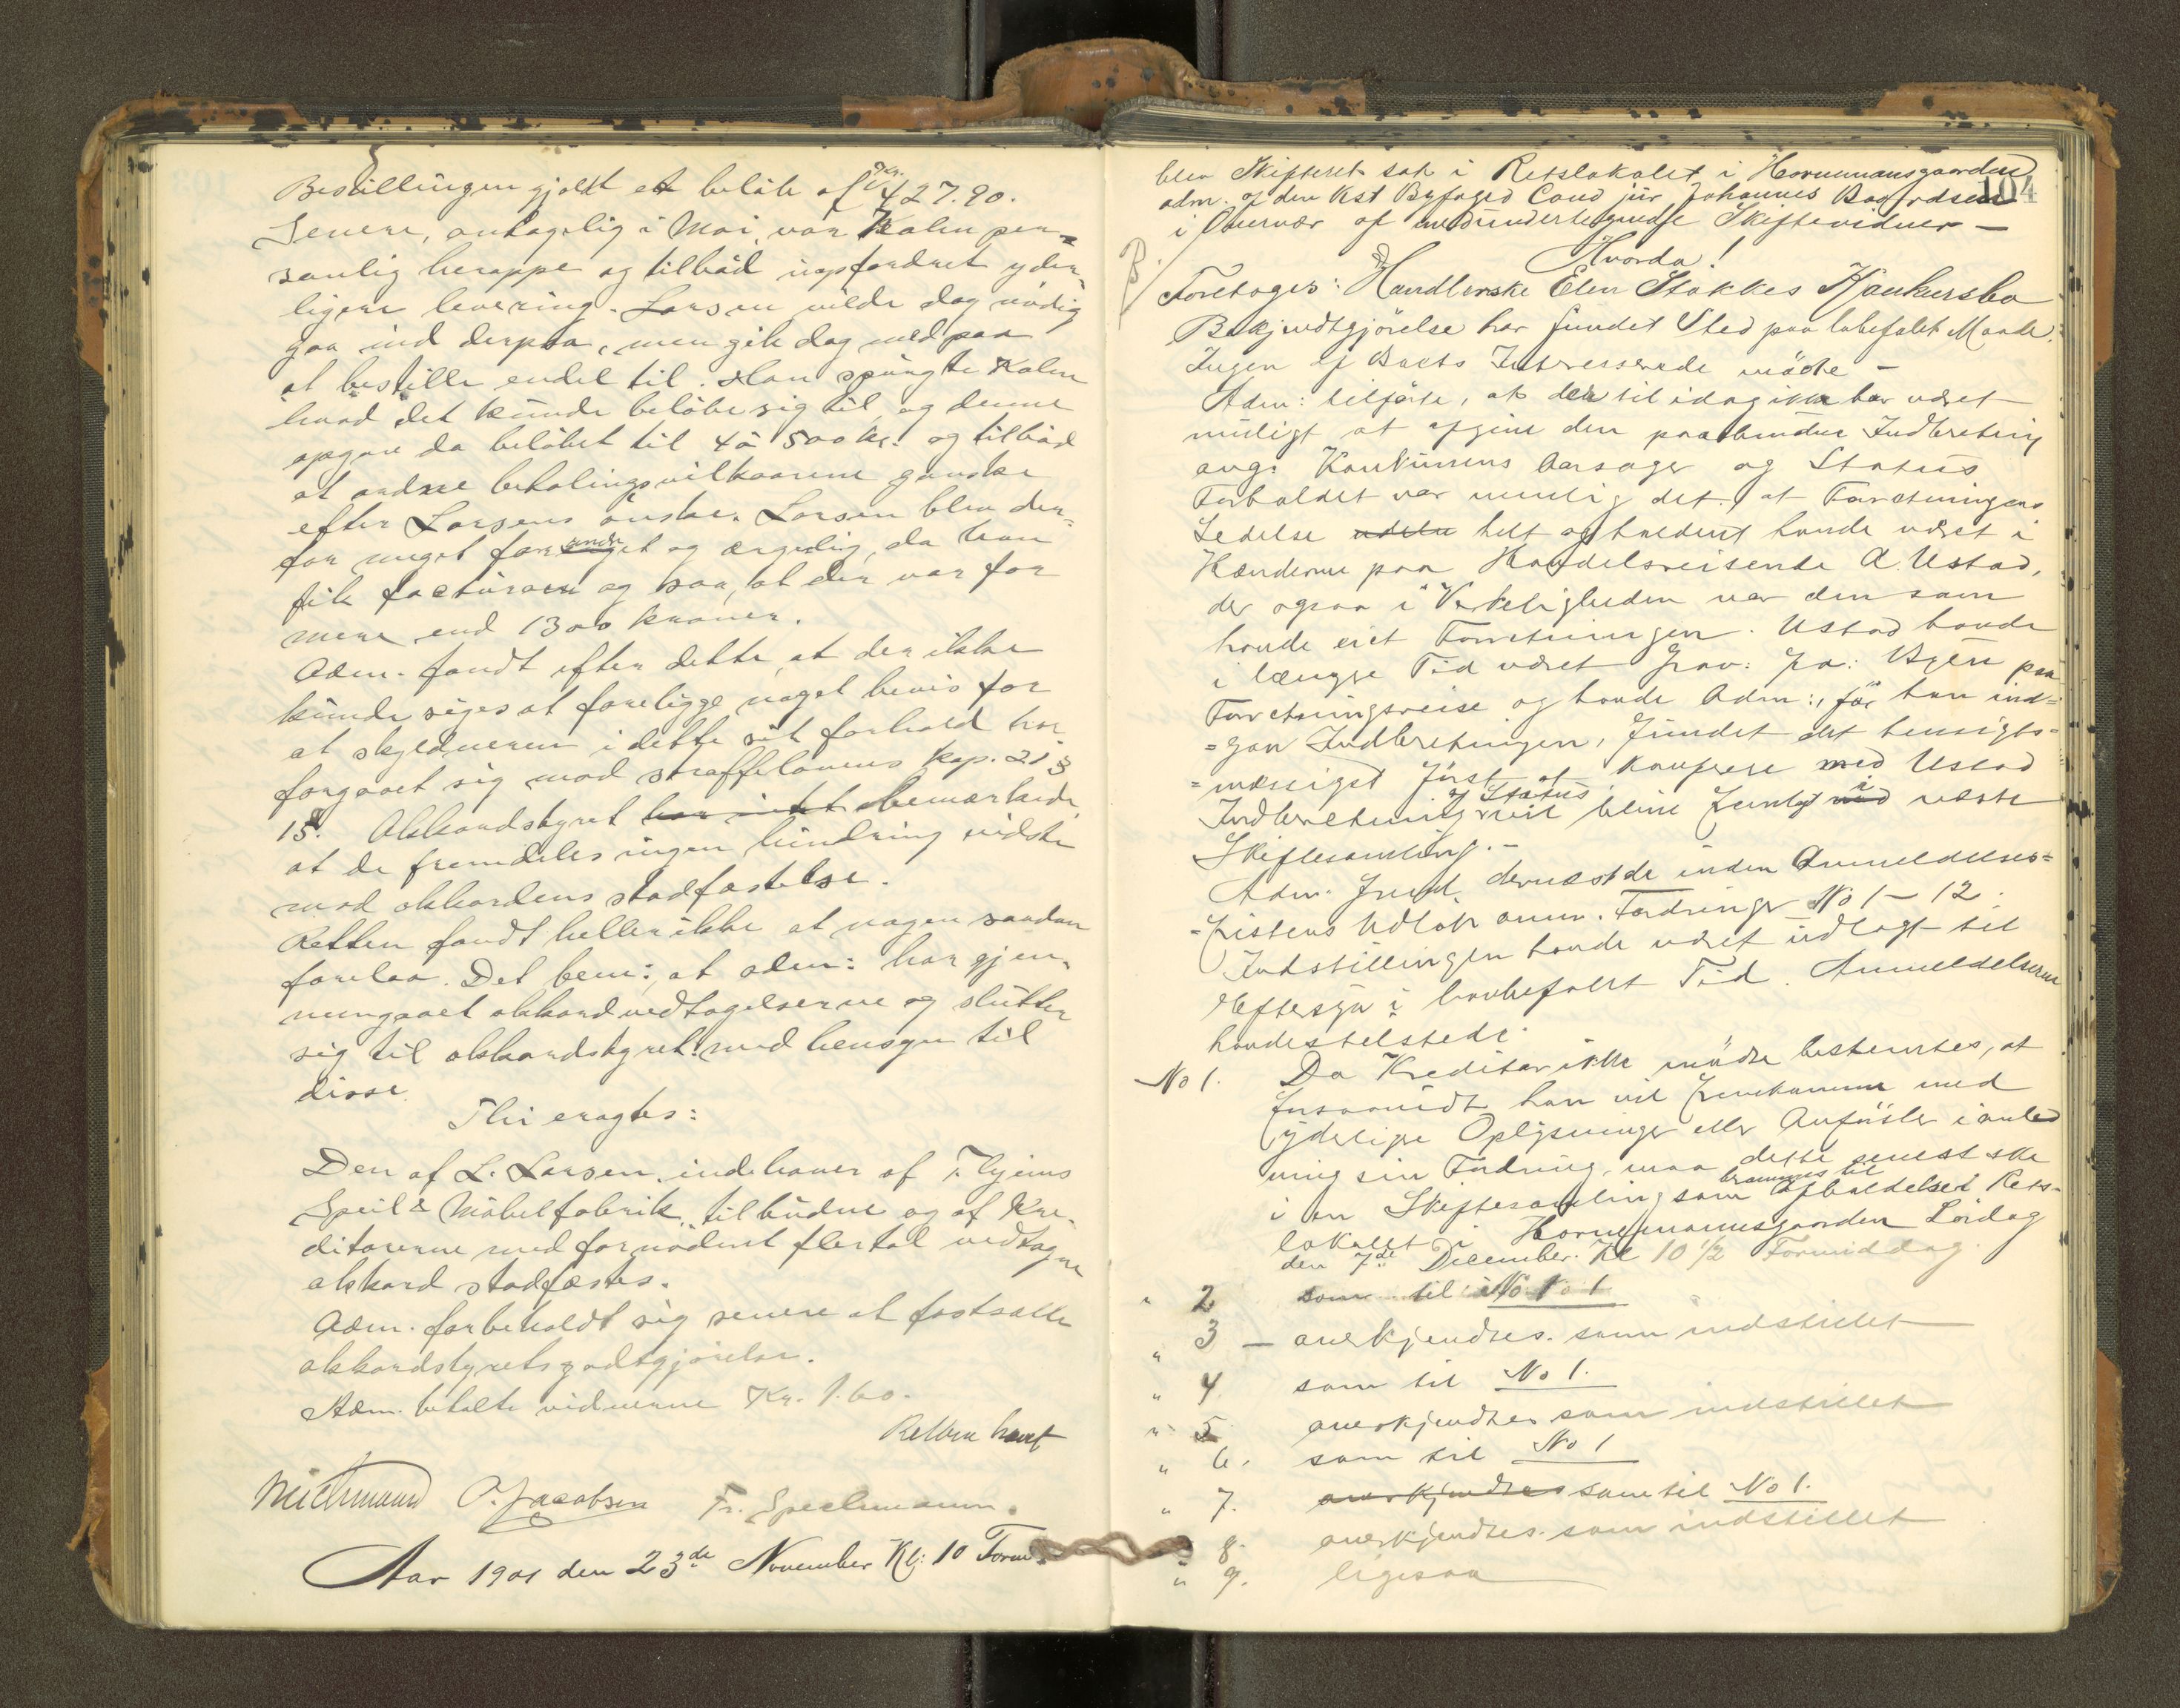 Bestillingen gjaldt et beløb af Kr. 427.90.
Senere, antagelig i Mai, var Kahn per-
sonlig heroppe og tilbød uopfordret yder-
ligere levering. Larsen vilde dog nødig
gaa ind derpaa, men gik dog med paa
at bestille endel til. Han spurgte Kahn
hvad det kunde beløbe sig til, og denne
opgav da beløbet til 4 à 500 kr. og tilbød
at ordne betalingsvilkaarene ganske
efter Larsens ønske. Larsen blev der-
for meget forundret og ærgerlig, da han
fik facturaen og saa, at den var for
mere end 1300 kroner.
Adm. fandt efter dette, at der ikke
kunde siges at foreligge noget bevis for
at skyldneren i dette sit forhold har
forgaaet sig mod straffelovens kap. 21 §
15. Akkordstyret har intet bemærkede,
at de fremdeles ingen hindring vidste
mod akkordens stadfæstelse.
Retten fandt heller ikke at nogen saadan
forelaa. Det bem: at adm: har gjen-
nemgaaet akkordvedtagelserne og slutter
sig til akkordstyret med hensyn til
disse.
Thi eragtes:
Den af L. Larsen, indehaver af Trhjems
Speil & Møbelfabrik, tilbudne og af Kre-
ditorerne med fornødent flertal vedtagne
akkord stadfæstes.
Adm. forbeholdt sig senere at fastsætte
akkordstyrets godtgjørelse.
Adm. betalte vidnerne Kr. 1.60.
Retten hævet
O. Jacobsen Fr. Speckmann.
Aar 1901 den 23de November Kl: 10 Form.
104
blev Skifteret sat i Retslokalet i Hornemansgaarden
adm. af den Kst Byfoged Cand jur Johannes Baardsen
i Overvær af medundertegnede Skiftevidner —
Hvorda!
B.
Foretoges: Handlerske Elen Stokkes Konkursbo
Bekjendtgjørelse har fundet Sted paa lobefalet Maade.
Ingen af Boets Interesserede mødte —
Adm: tilførte, at det til idag ikke har været
muligt at afgive den paabudne Indberetning
ang. Konkursens Aarsager og Status
Forholdet var nemlig det, at Forretningens
Ledelse udelu helt og holdent havde været i
Hænderne paa Handelsreisende A. Ustad,
der ogsaa i Virkeligheden var den som
havde eiet Forretningen. Ustad havde
i længre Tid været frav: fra: Byen paa
Forretningsreise og havde Adm:, før han ind-
=gav Indberetningen, fundet det hensigts-
=mæssigst først at konferere med Ustad
Indberetning af Status vil blive fremlagt ved i næste
Skiftesamling. —
Adm. frem. dernæst de inden Anmeldelses=
=fristens Udløb anm. Fordringer No 1 – 12.
Indstillingen havde været udlagt til
Eftersyn i lovbefalet Tid. Anmeldelserne
havdes tilstede.
No 1. Da Kreditor ikke mødte bestemtes, at
forsaavidt han vil fremkomme med
yderligere Oplysninger eller Anførsler i anled
ning sin Fordring, maa dette senest ske
i en Skiftesamling som berammes til Afholdelse i Rets-
lokalet i Hornemansgaarden Lørdag
den 7de December Kl 10 1/2 Formiddag.
" 2 som til No 1
" 3 — anerkjendtes som indstillet
" 4. som til No 1.
" 5 anerkjendtes som indstillet
" 6. som til No 1
" 7. anerkjendtes som til No 1.
" 8. anerkjendtes som indstillet
" 9. ligesaa